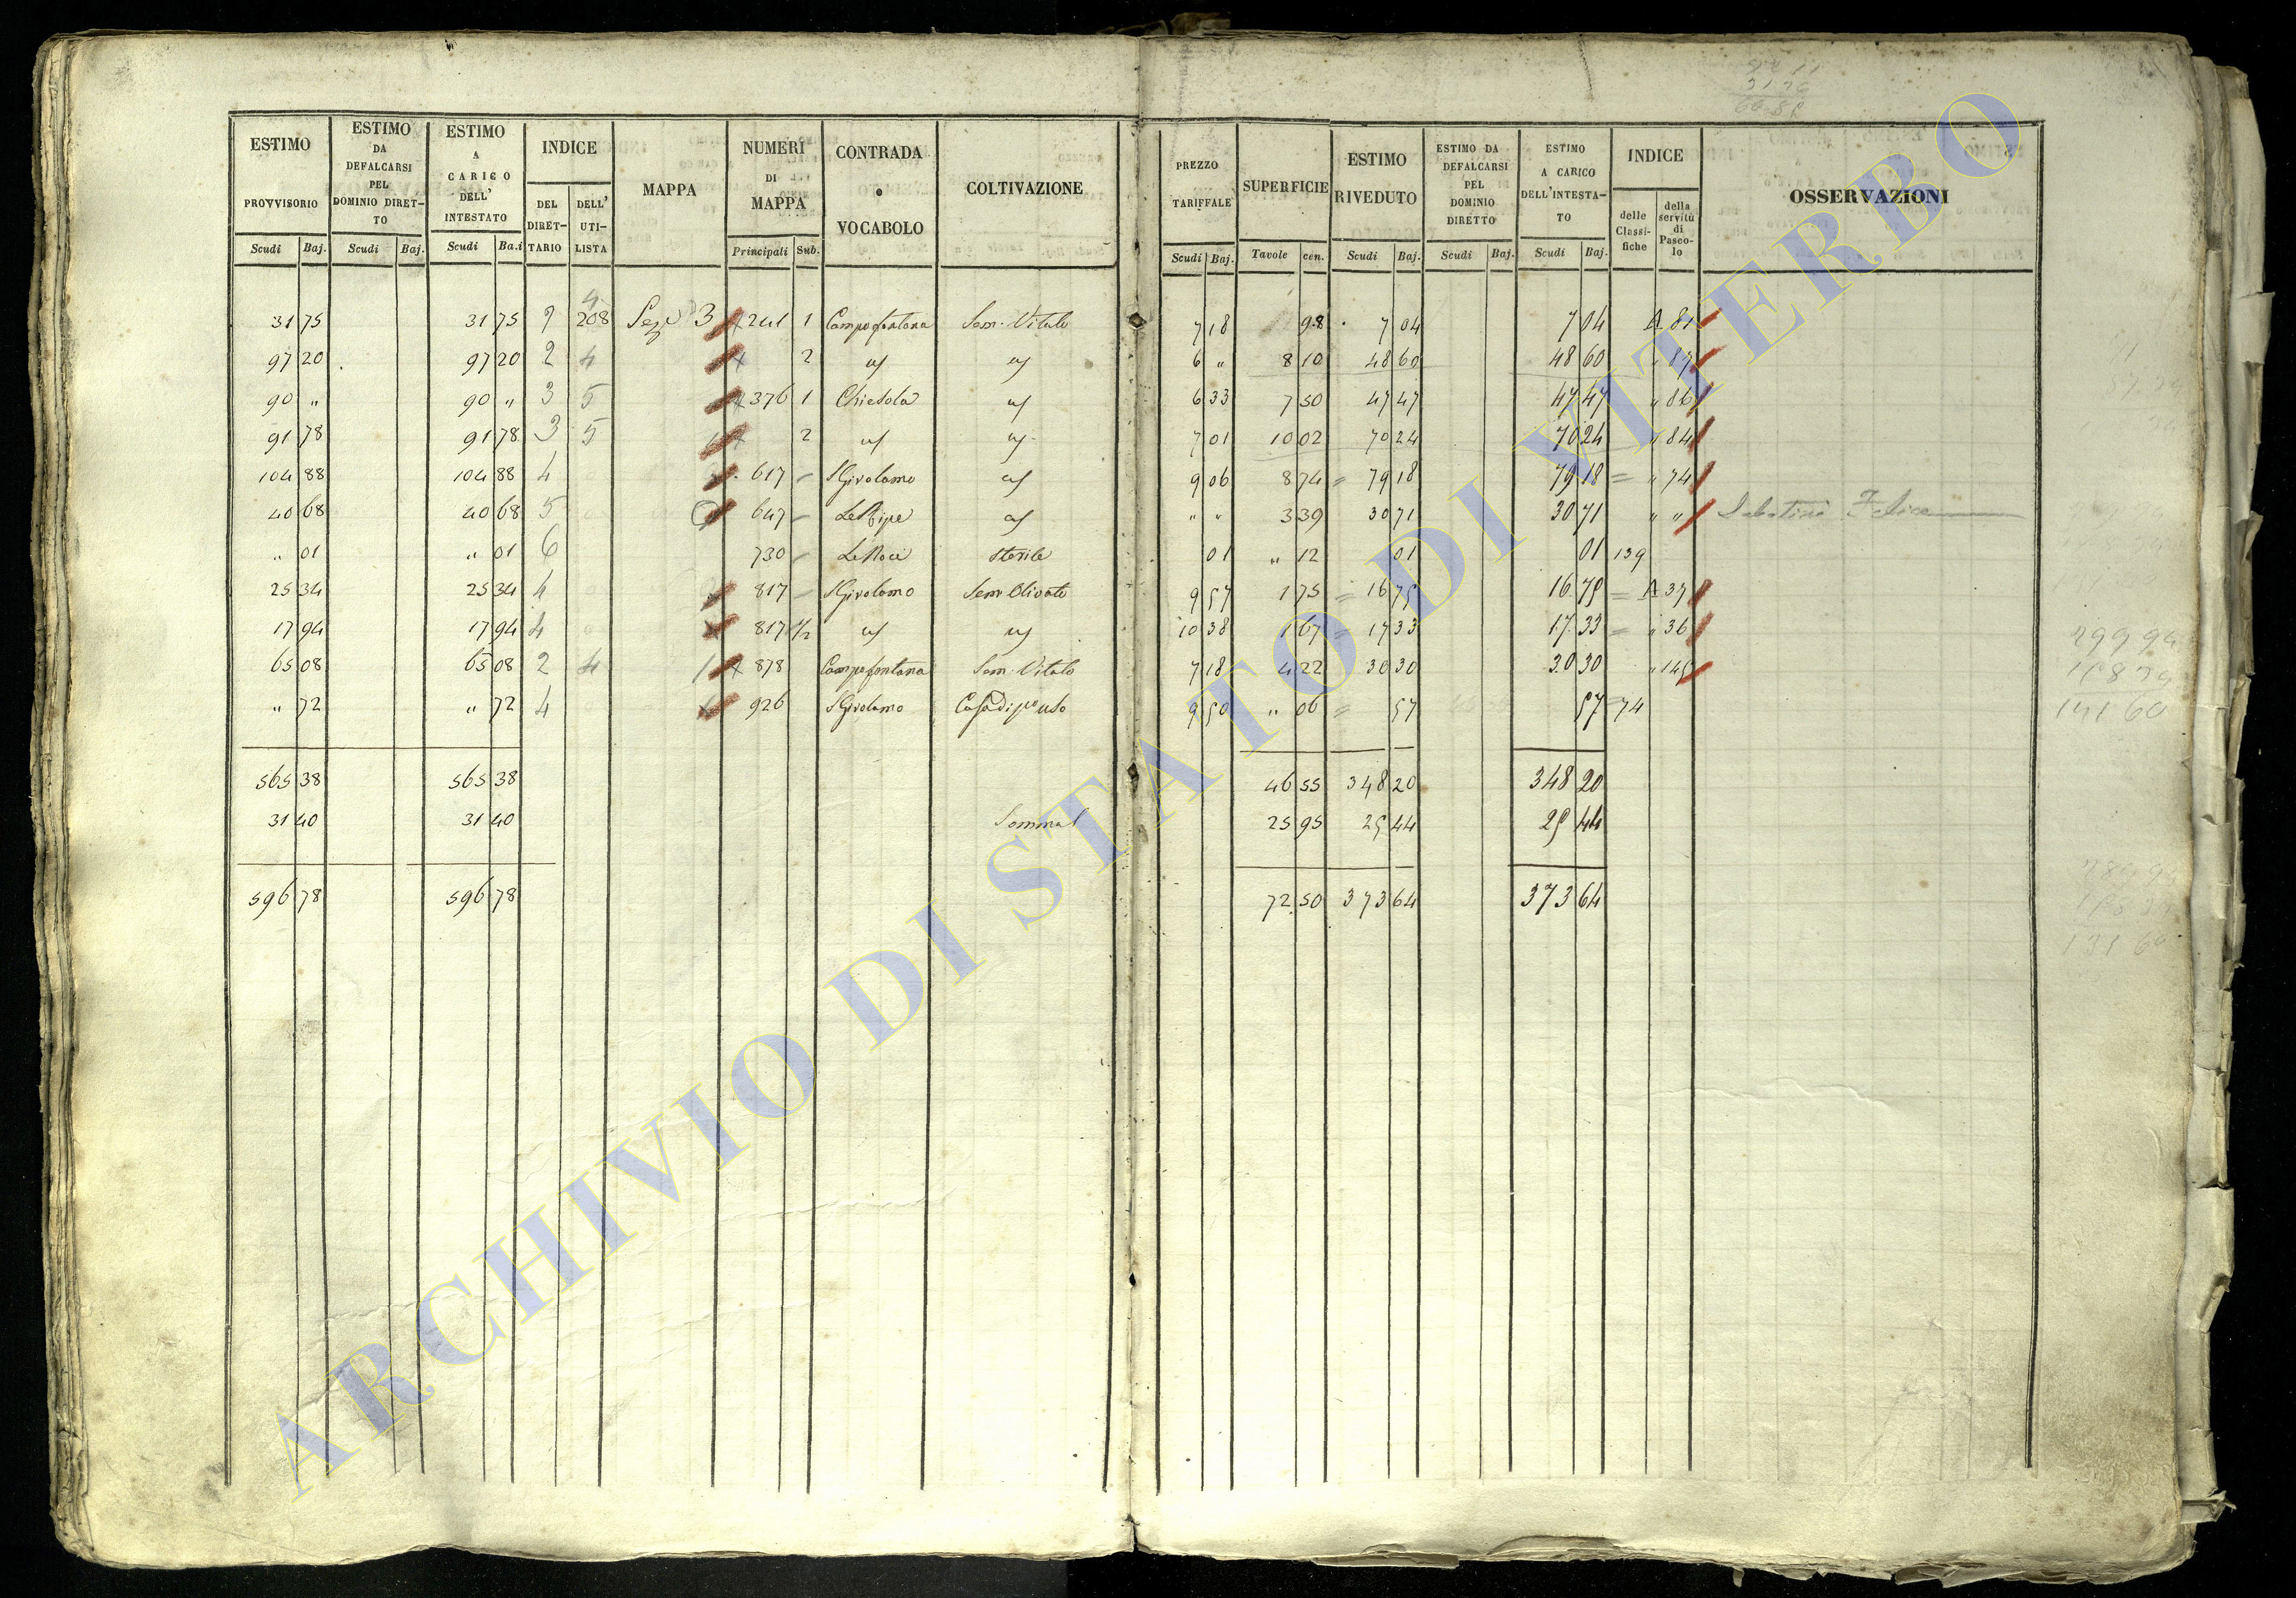 ESTIMO PROVVISORIO | ESTIMO DA DEFALCARSI PEL DOMINIO DIRET-TO | ESTIMO A CARICO DELL' INTESTATO | INDICE | MAPPA | NUMERI DI MAPPA | CONTRADA o VOCABOLO | COLTIVAZIONE | PREZZO TARIFFALE | SUPERFICIE | ESTIMO RIVEDUTO | ESTIMO DA DEFALCARSI PEL DOMINIO DIRETTO | ESTIMO A CARICO DELL'INTESTA-TO | INDICE | OSSERVAZIONI
DEL DIRET-TARIO | DELL' UTI-LISTA | delle Classi-fiche | della servitù di Pasco-lo
Scudi | Baj. | Scudi | Baj. | Scudi | Ba.i | Principali | Sub. | Scudi | Baj. | Tavole | cen. | Scudi | Baj. | Scudi | Baj. | Scudi | Baj.
31 75 | 31 75 | 208 | 3 | 241 | 1 | Campofontana | Sem. Vitato | 7 18 | 98 | 7 04 | 7 04 | A 81
97 20 | 97 20 | 2 | 4 | 2 | 6 " | 8 10 | 48 60 | 48 60 | " 87
90 " | 90 " | 3 | 5 | 376 | 1 | Chiesola | 6 33 | 7 50 | 47 47 | 47 47 | " 86
91 78 | 91 78 | 3 | 5 | 2 | 7 01 | 10 02 | 70 24 | 70 24 | " 84
104 88 | 104 88 | 4 | 617 | S Girolamo | 9 06 | 8 74 | 79 18 | 79 18 | " 74
40 68 | 40 68 | 5 | 647 | Le Ripe | " " | 3 39 | 30 71 | 30 71 | " " | Sabatini Felice
" 01 | " 01 | 6 | 730 | Sterile | 01 | " 12 | 01 | 01 | 139
25 34 | 25 34 | 4 | 817 | S Girolamo | Sem Olivato | 9 57 | 1 75 | 16 75 | 16 75 | A 37
17 94 | 17 94 | 4 | 817 | 1/2 | 10 38 | 1 67 | 17 33 | 17 33 | " 36
65 08 | 65 08 | 2 | 4 | 878 | Campofontana | Sem. Vitato | 7 18 | 4 22 | 30 30 | 30 30 | " 145
" 72 | " 72 | 4 | 926 | S Girolamo | Casa di po uso | 9 50 | " 06 | 57 | 57 | 74
565 38 | 565 38 | 46 55 | 348 20 | 348 20
31 40 | 31 40 | 25 95 | 25 44 | 25 44
596 78 | 596 78 | 72 50 | 373 64 | 373 64
ARCHIVIO DI STATO DI VITERBO